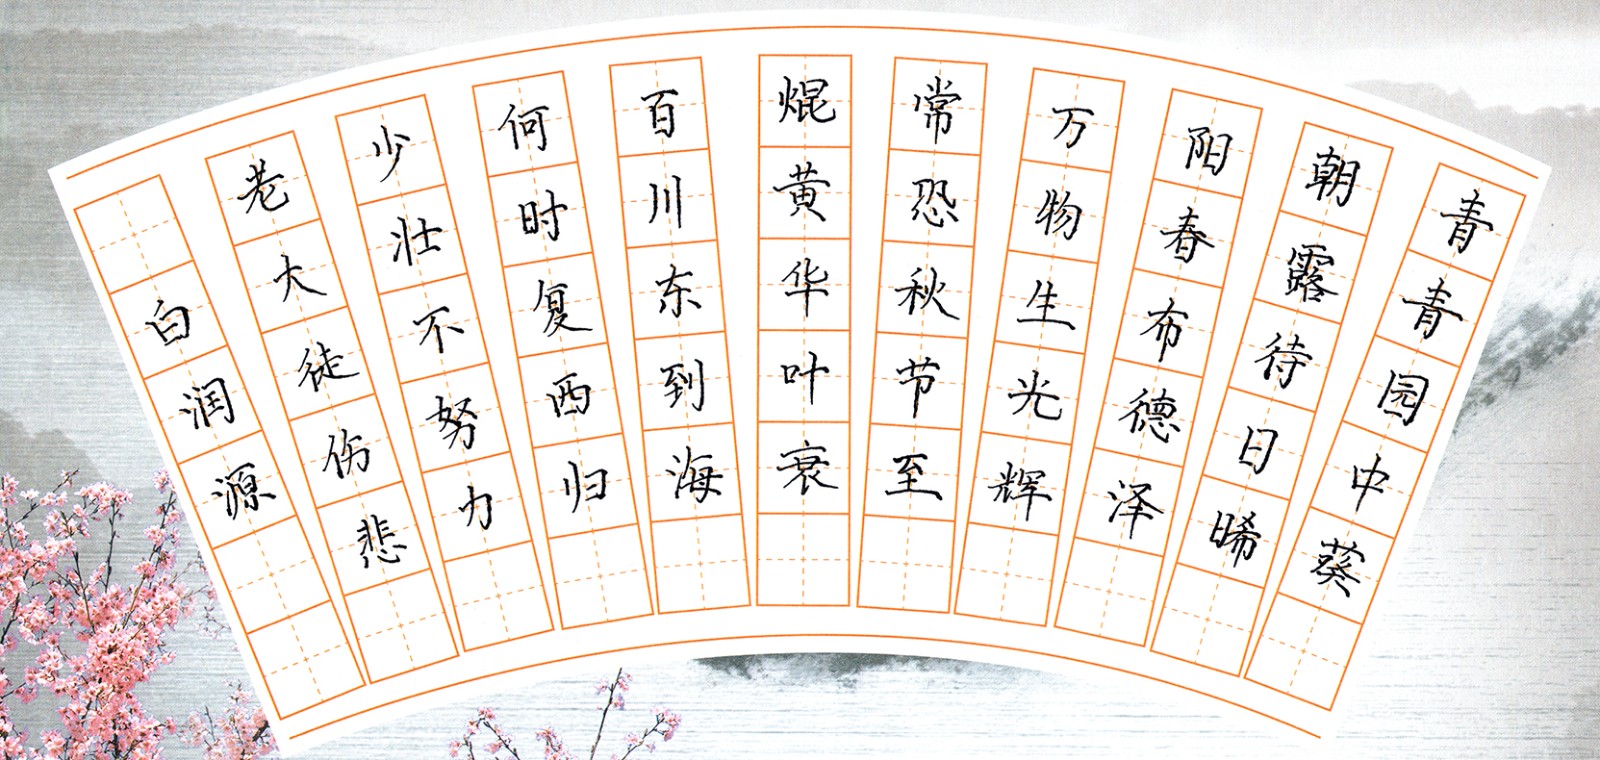 青青园中葵
朝露待日晞
阳春布德泽
万物生光辉
常恐秋节至
焜黄华叶衰
百川东到海
何时复西归
少壮不努力
老大徒伤悲
白润源